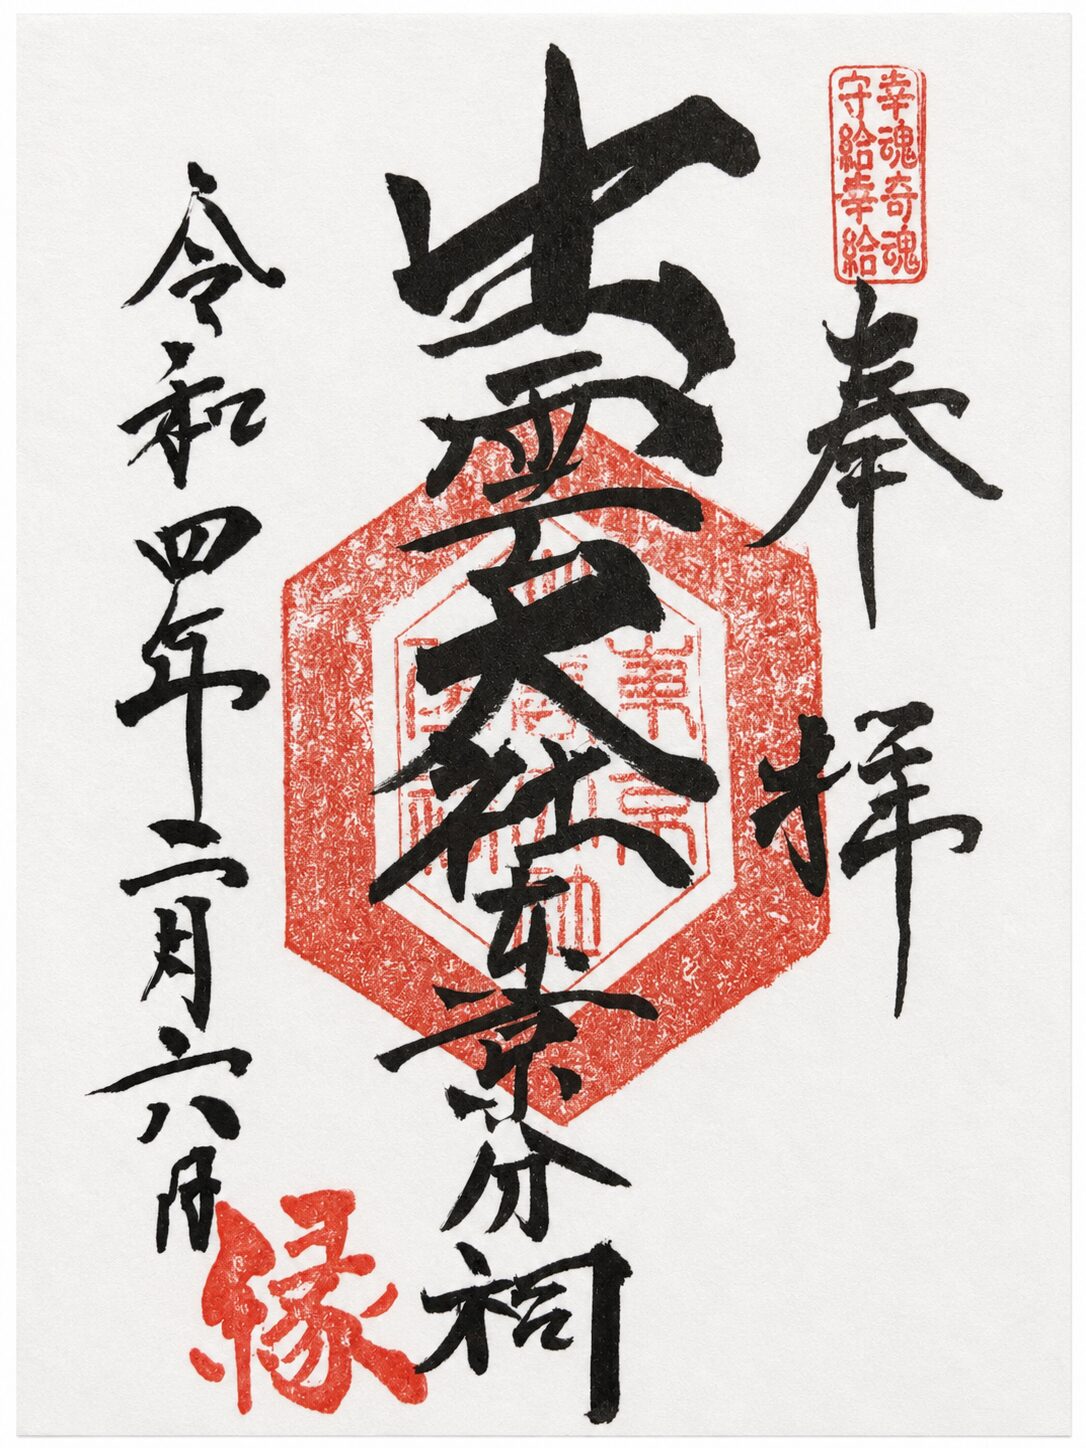 幸魂奇魂
守給幸給
奉拝
出雲大社東京分祠
令和四年二月六日
縁